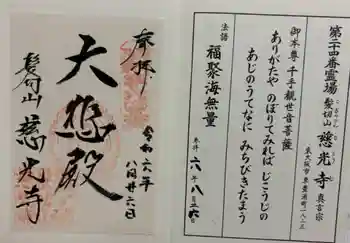 第二四番霊場 髪切山 慈光寺 真言宗
東大阪市東豊浦町
御本尊 千手観世音菩薩
ありがたや のぼりてみれば じこうじの
あじのうてなに みちびきたまう
法語
福聚海無量
六年八月廿六日
奉拝
大悲殿
髪切山 慈光寺
令和六年
八月廿六日